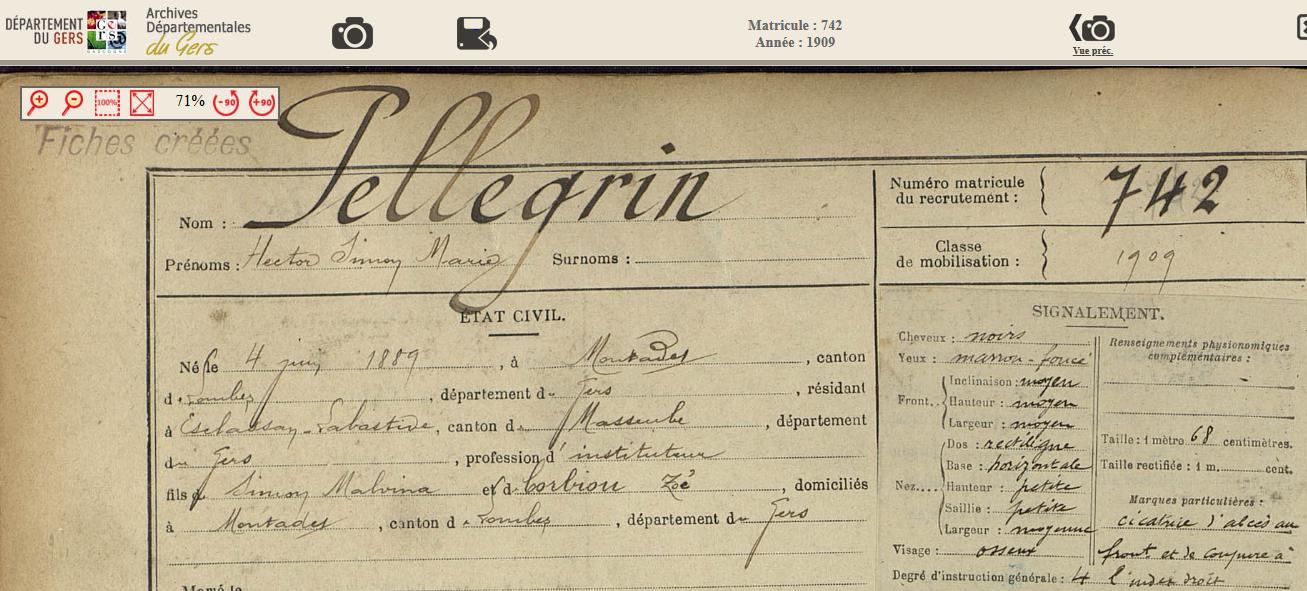 DÉPARTEMENT
DU GERS
Archives
Départementales
du Gers
Matricule : 742
Année : 1909
Vue préc.
71%
Fiches créées
Pellegrin
Nom :
Prénoms : Hector Simon Marie Surnoms :
Numéro matricule
du recrutement : 742
Classe
de mobilisation : 1909
ÉTAT CIVIL.
Né le 4 juin 1889, à Montadet, canton
de Lombez, département du Gers, résidant
à Esclassan-Labastide, canton de Masseube, département
du Gers, profession d'instituteur
fils de Simon Malvina et de Corbiou Zoé, domiciliés
à Montadet, canton de Lombez, département du Gers
SIGNALEMENT.
Cheveux : noirs
Yeux : marron-foncé
Front. Inclinaison : moyen
Hauteur : moyen
Largeur : moyen
Nez. Dos : rectiligne
Base : horizontale
Hauteur : petite
Saillie : petite
Largeur : moyenne
Visage : osseux
Degré d'instruction générale : 4
Renseignements physionomiques
complémentaires :
Taille : 1 mètre 68 centimètres.
Taille rectifiée : 1 m. cent.
Marques particulières :
cicatrice d'abcès au
front et de coupure à
l'index droit